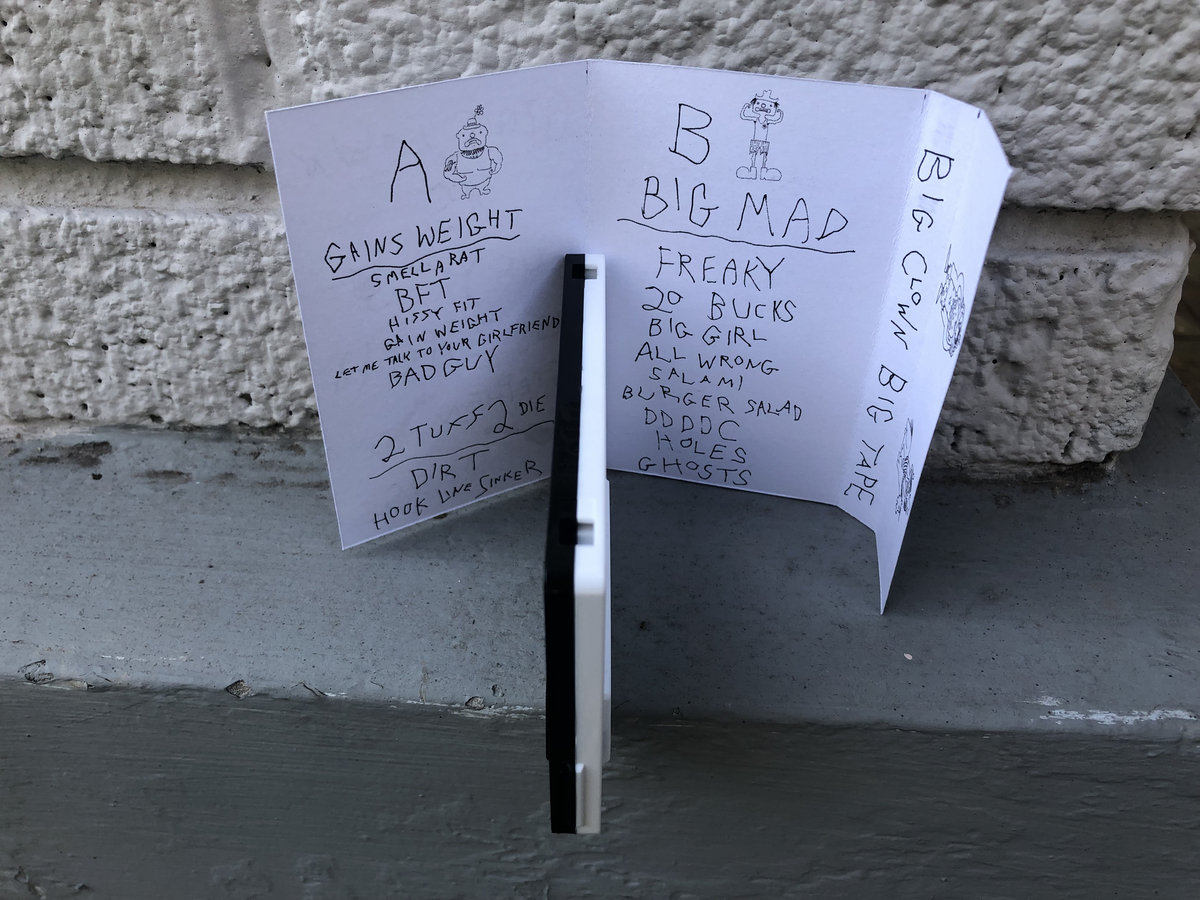 A
GAINS WEIGHT
SMELL A RAT
BFT
HISSY FIT
GAIN WEIGHT
LET ME TALK TO YOUR GIRLFRIEND
BAD GUY
2 TUFF 2 DIE
DIRT
HOOK LINE SINKER
B
BIG MAD
FREAKY
20 BUCKS
BIG GIRL
ALL WRONG
SALAMI
BURGER SALAD
DDDDC
HOLES
GHOSTS
BIG CLOWN BIG TAPE